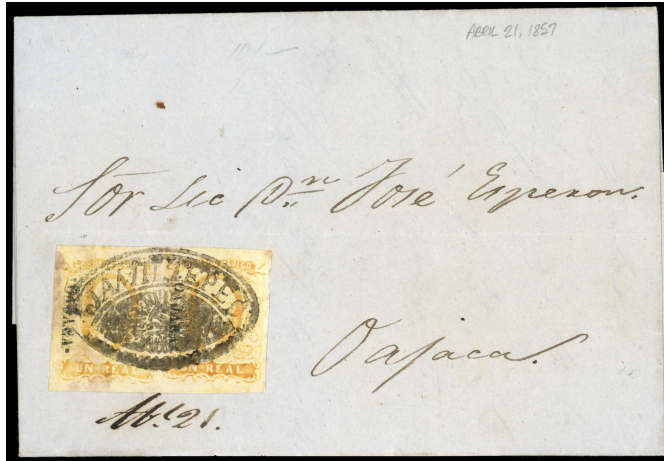 ABRIL 21, 1857
Sōr Lic Dn José Esperon.
OAXACA
UN REAL UN REAL
Oajaca.
Ab.l 21.